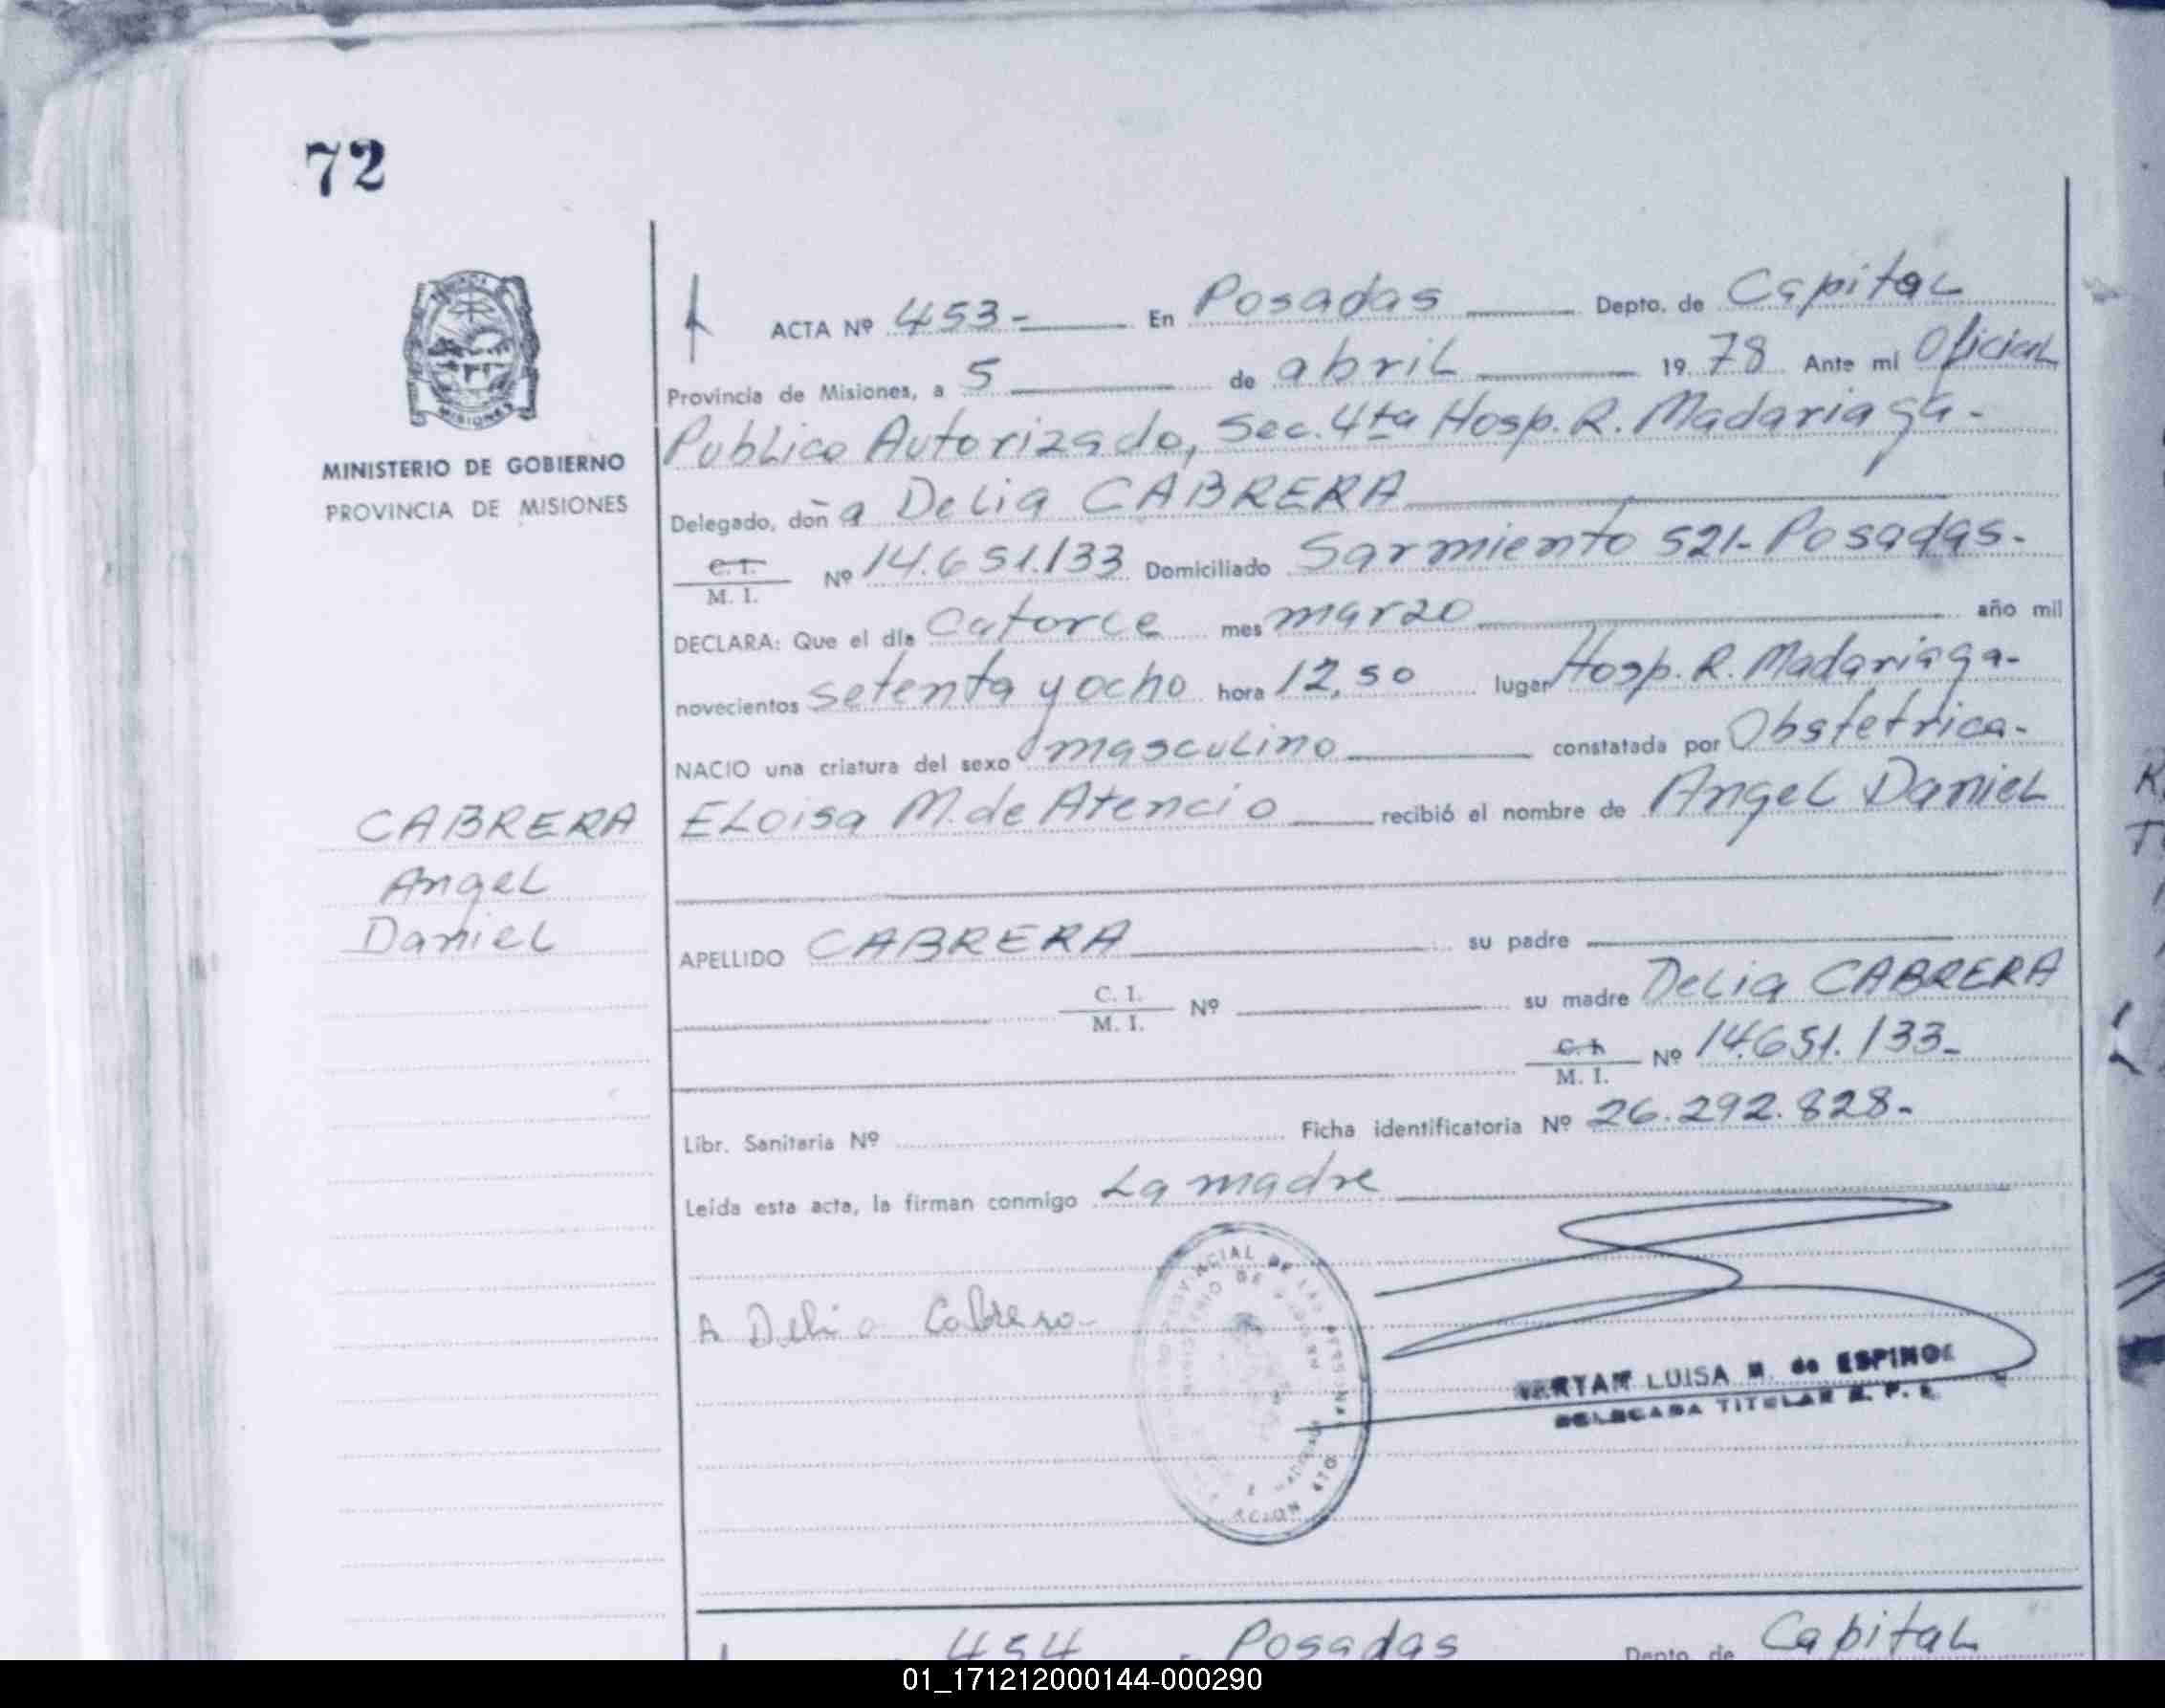 72
MISIONES
MINISTERIO DE GOBIERNO
PROVINCIA DE MISIONES
CABRERA
Angel
Daniel
ACTA Nº 453- En Posadas Depto. de Capital
Provincia de Misiones, a 5 de abril 19 78 Ante mí Oficial
Publico Autorizado, Sec. 4ta Hosp. R. Madariaga-
Delegado, doña Delia CABRERA
C. I. / M. I. Nº 14.651.133 Domiciliado Sarmiento 521- Posadas-
DECLARA: Que el día Catorce mes marzo año mil
novecientos setenta y ocho hora 12,50 lugar Hosp. R. Madariaga-
NACIO una criatura del sexo masculino constatada por Obstetrica-
ELoisa M. de Atencio recibió el nombre de Angel Daniel
APELLIDO CABRERA su padre
C. I. / M. I. Nº su madre Delia CABRERA
C. I. / M. I. Nº 14.651.133-
Libr. Sanitaria Nº Ficha identificatoria Nº 26.292.828-
Leída esta acta, la firman conmigo La madre
A Delia Cabrera-
LUISA M. de ESPINO
DELEGADA TITULAR
454 Posadas Depto. de Capital
01_171212000144-000290